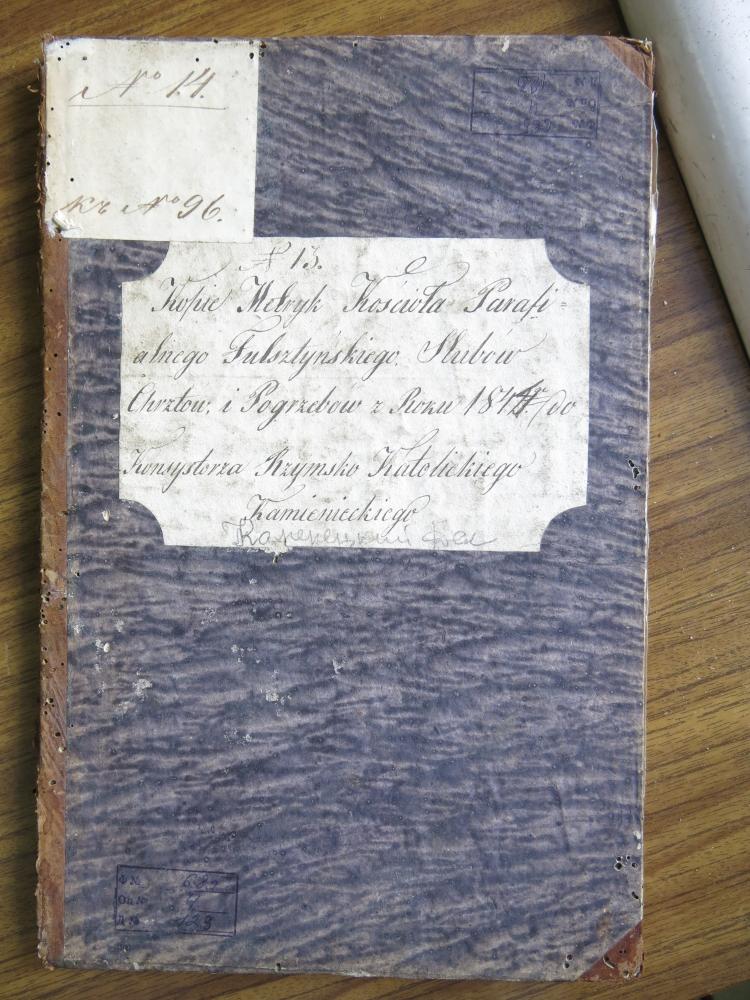 № 14.
къ № 96.
№ 13.
Kopie Metryk Kościoła Parafi=
alnego Fulsztyńskiego. Slubow
Chrztow, i Pogrzebow z Roku 1844. do
Konsystorza Rzymsko Katolickiego
Kamienieckiego
Ф №
Оп №
Д №